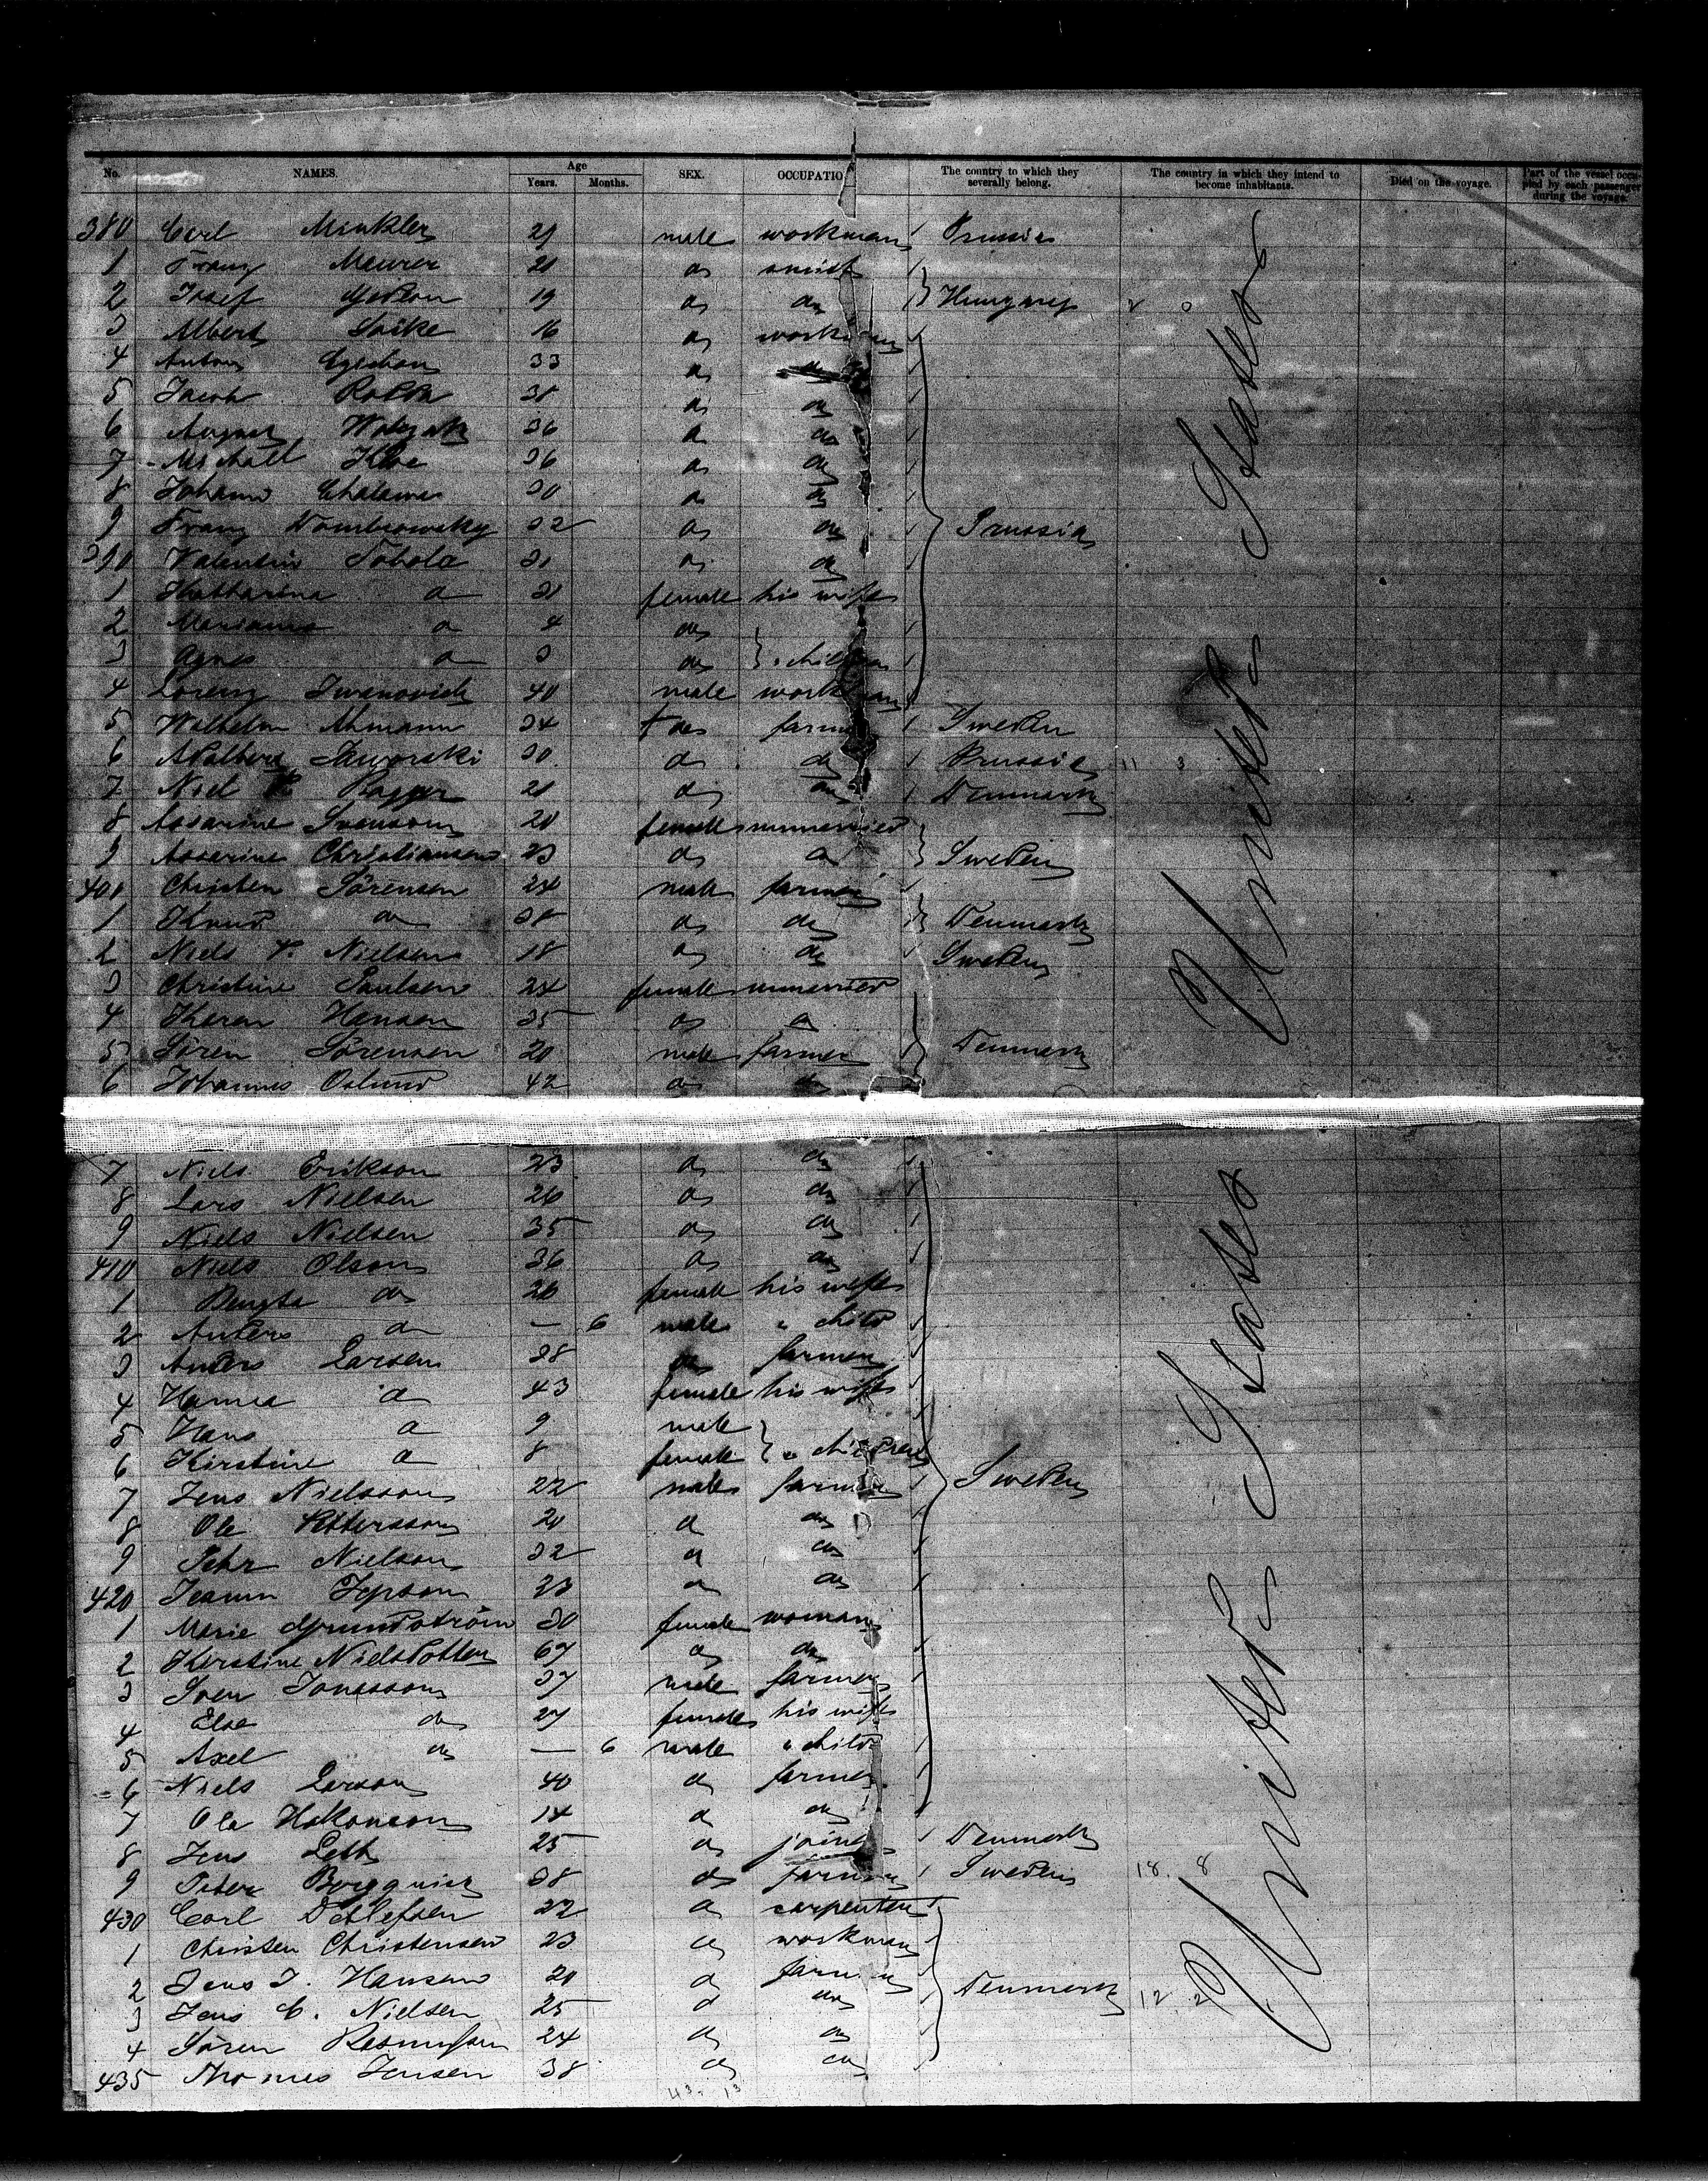 No. NAMES. Age Years. Months. SEX. OCCUPATIO The country to which they severally belong. The country in which they intend to become inhabitants. Died on the voyage. Part of the vessel occupied by each passenger during the voyage.
380 Carl Minkler 29 male workman Prussia
1 Franz Meurer 21 do smith
2 Josef 19 do do Hungary
3 Albert 16 do workman
4 Anton 33 do do
5 Jacob 38 do do
6 August 36 do do
7 Michael 36 do do
8 Johann 30 do do
9 Franz Dombrowsky 32 do do Prussia
390 Valentin Sobola 31 do do
1 Katharina do 31 female his wife
2 Marianna do 4 do
3 Agnes do 3 do " children
4 Lorenz Iwanovich 40 male workman
5 Wilhelm Ahmann 34 + do farmer Sweden
6 Adalbert Jaworski 30 do do Prussia 11 3
7 Niel 21 do do Denmark
8 Assarine Svensson 20 female unmarried
9 Asserine Christiansen 23 do do Sweden
400 Christen Sörensen 24 male farmer
1 Knud do 28 do do Denmark
2 Niels P. Nielsen 18 do do Sweden
3 Christine Paulsen 24 female unmarried
4 Karen Hansen 35 do do
5 Sören Sörensen 20 male farmer Denmark
6 Johannes Oslund 42 do do
United States
7 Niels Erikson 23 do do
8 Lars Nielsen 26 do do
9 Niels Nielsen 35 do do
410 Niels Olson 36 do do
1 Bengta do 26 female his wife
2 Anders do — 6 male " child
3 Anders Larsen 38 do farmer
4 Hanna do 43 female his wife
5 Hans do 9 male
6 Kirstine do 8 female " children
7 Jens Nielsson 22 male farmer Sweden
8 Ole Pettersson 20 do do
9 Pehr Nielson 32 do do
420 Jeppson 23 do do
1 Marie Grundström 30 female woman
2 Kerstine Nielsdotter 67 do do
3 Sven Jonsson 37 male farmer
4 Else do 27 female his wife
5 Axel do — 6 male " child
6 Niels Larson 40 do farmer
7 Ola Hakonson 14 do do
8 Jens Leth 25 do joiner Denmark
9 Peter Borgquist 38 do farmer Sweden 18. 8
430 Carl Detlefsen 22 do carpenter
1 Christen Christensen 23 do workman
2 Jens J. Hansen 20 do farmer
3 Jens C. Nielsen 25 do do Denmark 12. 2
4 Sören Rasmussen 24 do do
435 Thomas Jensen 38 do do
United States
43. 13